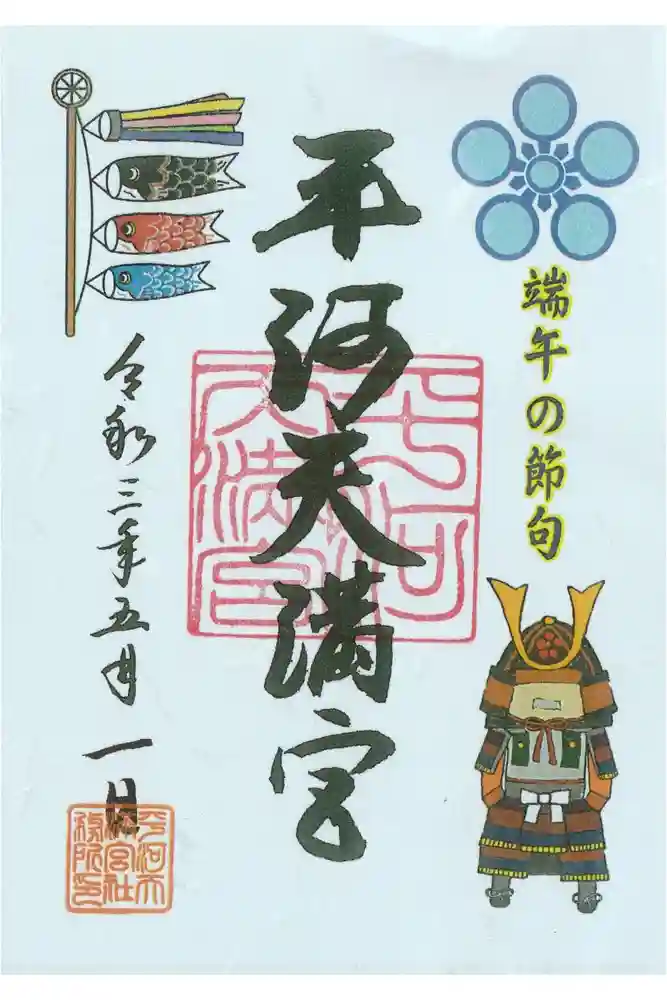 端午の節句
平河天満宮
令和三年五月一日
平河
天満宮
平河天
満宮社
務所印